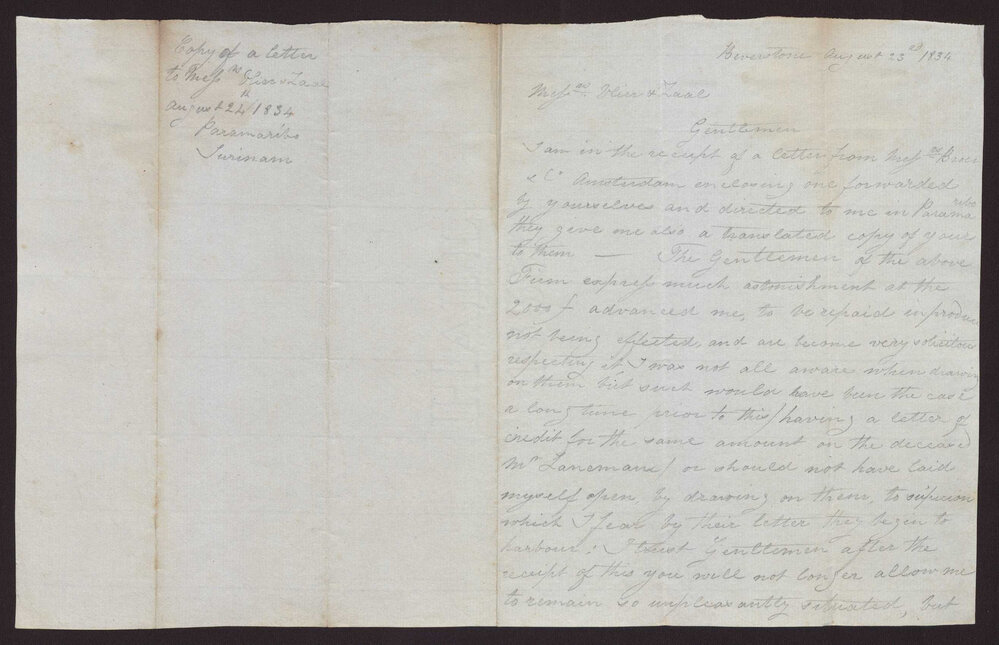 Copy of a letter
to Messrs Vlier & Zaal
August 24th 1834
Paramaribo
Surinam
August 23rd 1834
Messrs Vlier & Zaal
Gentlemen
I am in the receipt of a letter from Messrs
& Co Amsterdam enclosing one forwarded
by yourselves and directed to me in Paramaribo
they give me also a translated copy of your
to them — The Gentlemen of the above
Firm express much astonishment at the
2000 f advanced me, to be repaid in produce
not being effected, and are become very solicitous
respecting it I was not all aware when drawing
on them but such would have been the case
a long time prior to this/having a letter of
credit for the same amount on the deceased
Mr Lansmans/ or should not have laid
myself open, by drawing on them, to suspicion
which I fear by their letter they begin to
harbour: I trust Gentlemen after the
receipt of this you will not longer allow me
to remain so unpleasantly situated, but